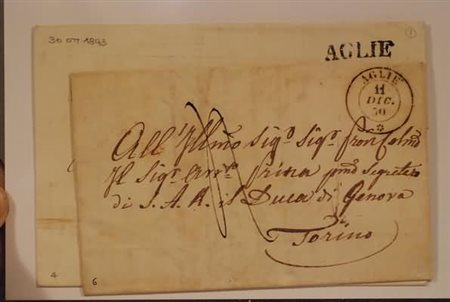 30 OTT. 1843
1
AGLIE
AGLIE
11
DIC.
50
All' Illmo Sigr Sigr Pron
Il Sigr Prina pmo Segreto
di S. A. R. il Duca di Genova
Torino
4
6